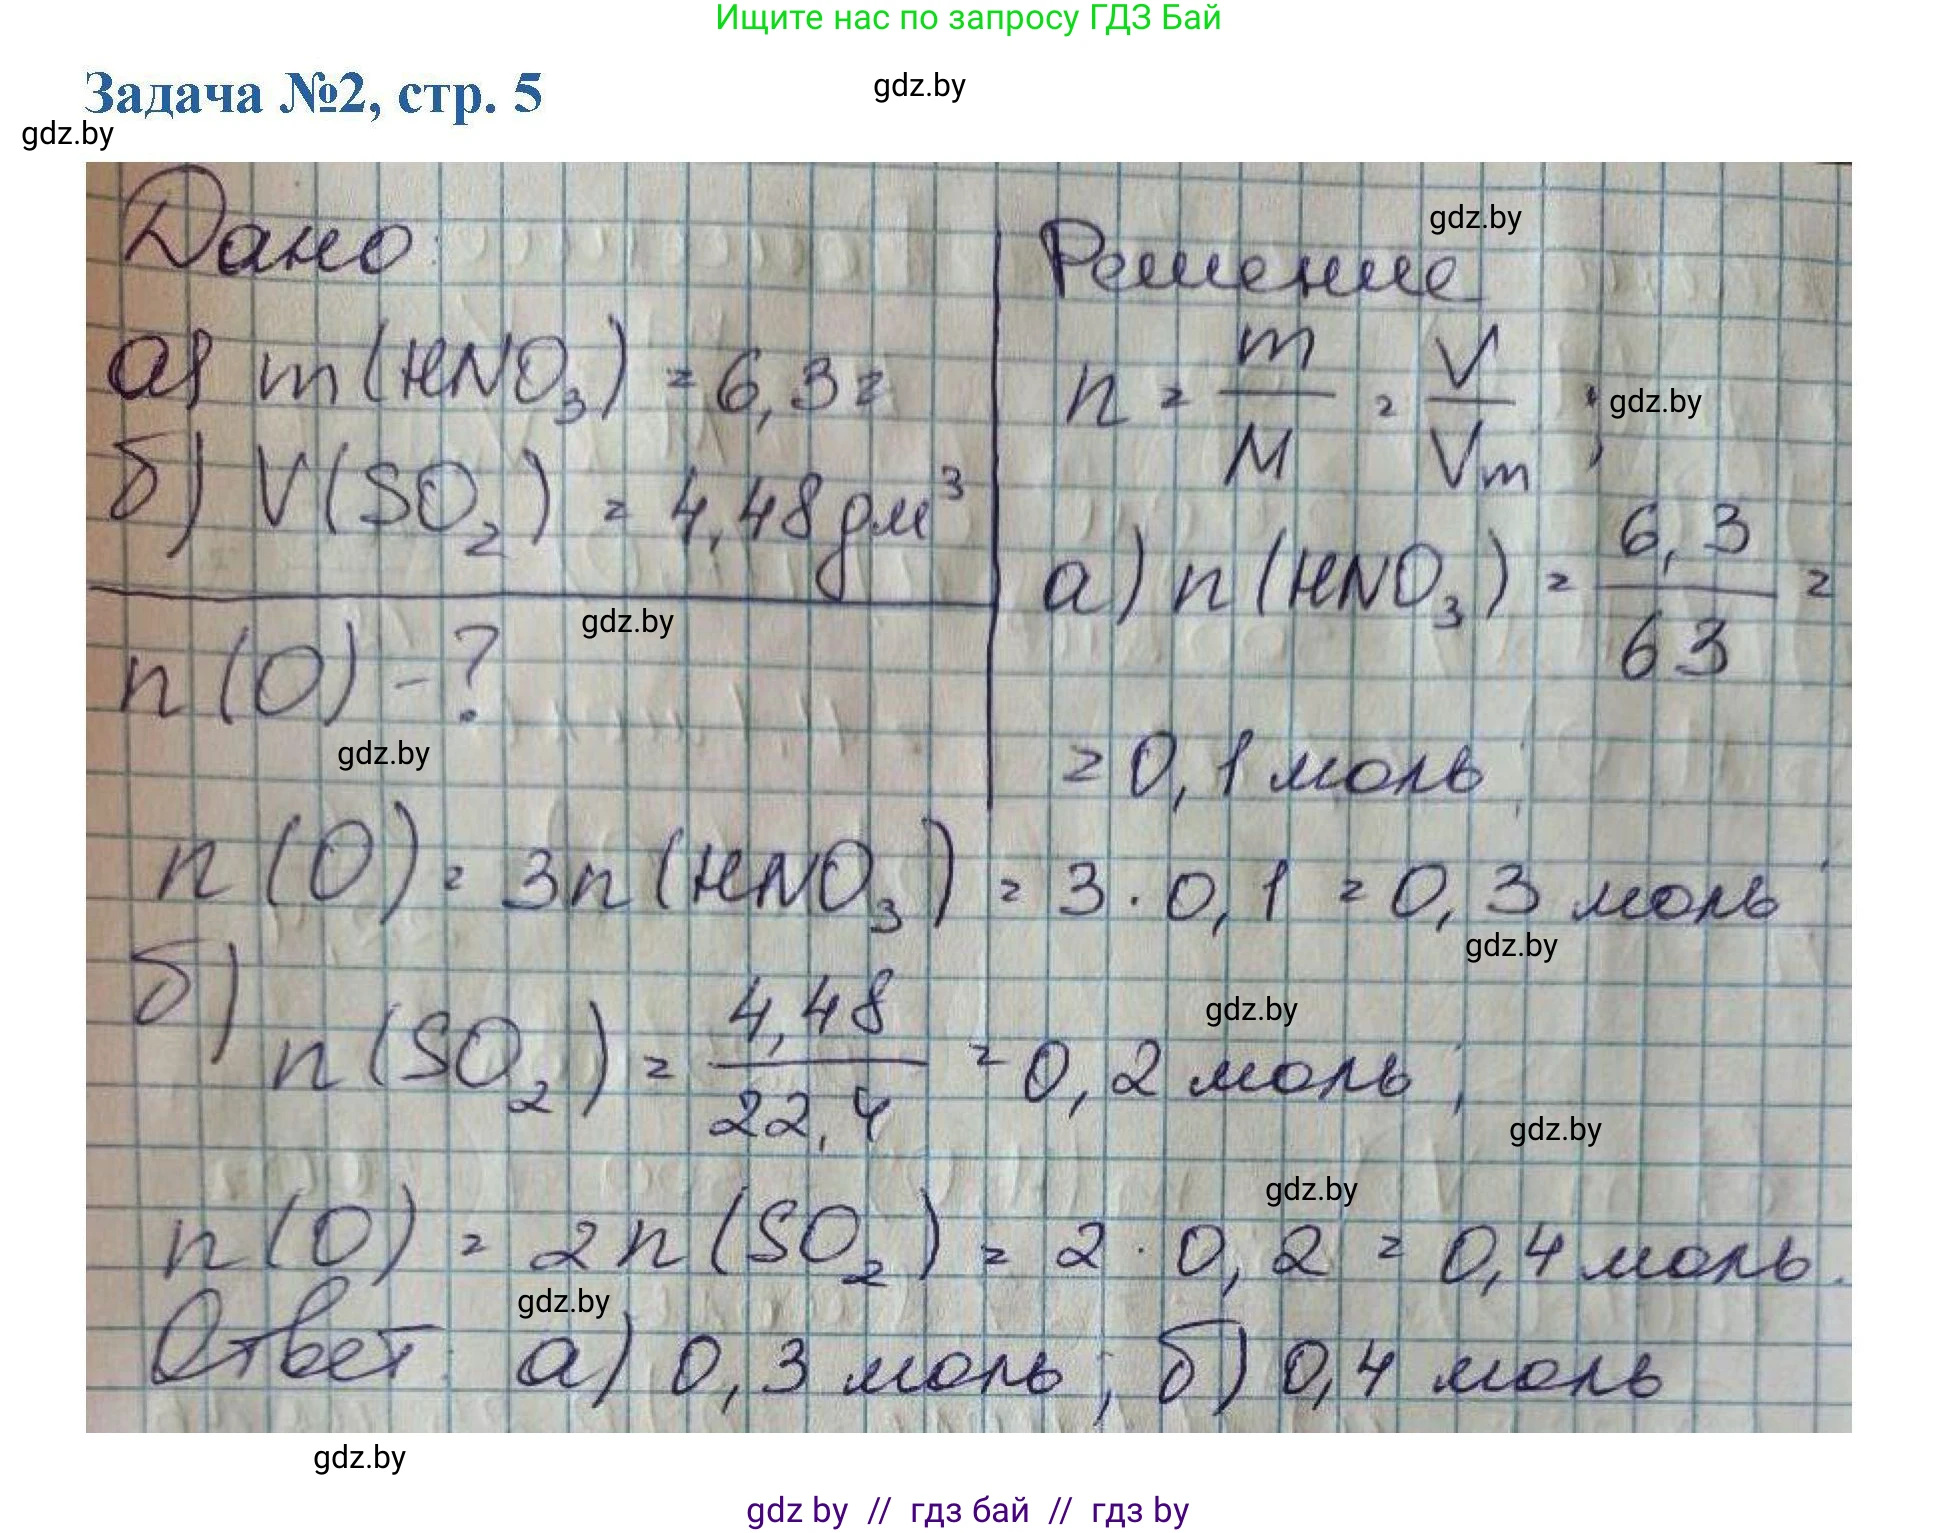 Ищите нас по запросу ГДЗ Бай
Задача №2, стр. 5
gdz.by
gdz.by
Дано:
а) m(HNO₃) = 6,3 г
б) V(SO₂) = 4,48 дм³
gdz.by
n(O) - ?
gdz.by
gdz.by
Решение
n = m/M = V/Vm ;
gdz.by
а) n(HNO₃) = 6,3/63 =
= 0,1 моль;
n(O) = 3n(HNO₃) = 3 · 0,1 = 0,3 моль
gdz.by
б)
n(SO₂) = 4,48/22,4 = 0,2 моль;
gdz.by
gdz.by
gdz.by
n(O) = 2n(SO₂) = 2 · 0,2 = 0,4 моль.
gdz.by
Ответ: а) 0,3 моль; б) 0,4 моль
gdz.by
gdz by // гдз бай // гдз by